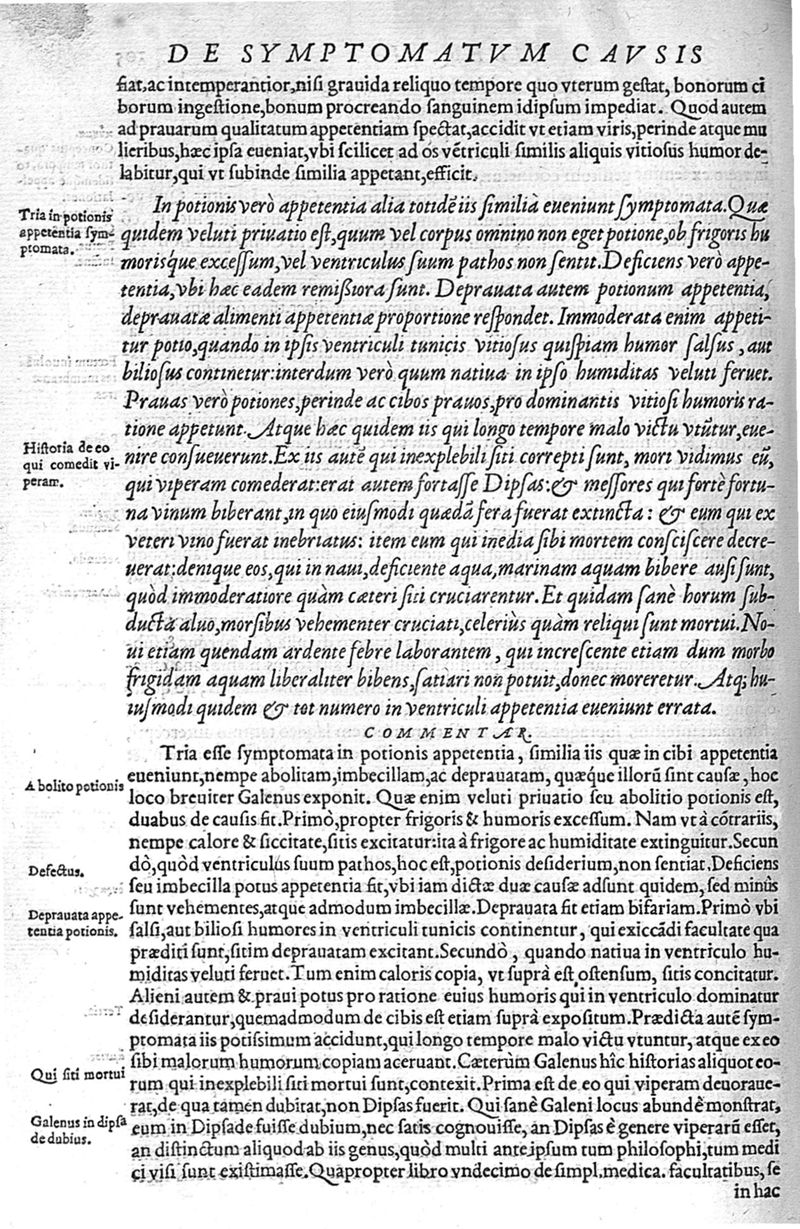 DE SYMPTOMATVM CAVSIS
fiat, ac intemperantior, nisi grauida reliquo tempore quo vterum gestat, bonorum ci
borum ingestione, bonum procreando sanguinem idipsum impediat. Quod autem
ad prauarum qualitatum appetentiam spectat, accidit vt etiam viris, perinde atque mu
lieribus, hæc ipsa eueniat, vbi scilicet ad os vētriculi similis aliquis vitiosus humor de-
labitur, qui vt subinde similia appetant, efficit.
Tria in potionis
appetentia sym-
ptomata.
In potionis verò appetentia alia totidē iis similia eueniunt symptomata. Quæ
quidem veluti priuatio est, quum vel corpus omnino non eget potione, ob frigoris hu
morisque excessum, vel ventriculus suum pathos non sentit. Deficiens verò appe-
tentia, vbi hæc eadem remißiora sunt. Deprauata autem potionum appetentia,
deprauatæ alimenti appetentiæ proportione respondet. Immoderata enim appeti-
tur potio, quando in ipsis ventriculi tunicis vitiosus quispiam humor salsus, aut
biliosus continetur: interdum verò quum natiua in ipso humiditas veluti feruet.
Prauas verò potiones, perinde ac cibos prauos, pro dominantis vitiosi humoris ra-
tione appetunt. Atque hæc quidem iis qui longo tempore malo victu vtūtur, eue-
Historia de eo
qui comedit vi-
peram.
nire consueuerunt. Ex iis autē qui inexplebili siti correpti sunt, mori vidimus eū,
qui viperam comederat: erat autem fortasse Dipsas: & messores qui fortè fortu-
na vinum biberant, in quo eiusmodi quædā fera fuerat extincta: & eum qui ex
veteri vino fuerat inebriatus: item eum qui inedia sibi mortem consciscere decre-
uerat: denique eos, qui in naui, deficiente aqua, marinam aquam bibere ausi sunt,
quòd immoderatiore quàm cæteri siti cruciarentur. Et quidam sanè horum sub-
ducta aluo, morsibus vehementer cruciati, celeriùs quàm reliqui sunt mortui. No-
ui etiam quendam ardente febre laborantem, qui increscente etiam dum morbo
frigidam aquam liberaliter bibens, satiari non potuit, donec moreretur. Atq; hu-
iusmodi quidem & tot numero in ventriculi appetentia eueniunt errata.
COMMENTAR.
Tria esse symptomata in potionis appetentia, similia iis quæ in cibi appetentia
Abolito potionis
eueniunt, nempe abolitam, imbecillam, ac deprauatam, quæque illorū sint causæ, hoc
loco breuiter Galenus exponit. Quæ enim veluti priuatio seu abolitio potionis est,
duabus de causis fit. Primò, propter frigoris & humoris excessum. Nam vt à cōtrariis,
nempe calore & siccitate, sitis excitatur: ita à frigore ac humiditate extinguitur. Secun
Defectus.
dò, quòd ventriculus suum pathos, hoc est, potionis desiderium, non sentiat. Deficiens
seu imbecilla potus appetentia fit, vbi iam dictæ duæ causæ adsunt quidem, sed minùs
Deprauata appe-
tentia potionis.
sunt vehementes, atque admodum imbecillæ. Deprauata fit etiam bifariam. Primò vbi
salsi, aut biliosi humores in ventriculi tunicis continentur, qui exiccādi facultate qua
præditi sunt, sitim deprauatam excitant. Secundò, quando natiua in ventriculo hu-
miditas veluti feruet. Tum enim caloris copia, vt suprà est ostensum, sitis concitatur.
Alieni autem & praui potus pro ratione euius humoris qui in ventriculo dominatur
desiderantur, quemadmodum de cibis est etiam suprà expositum. Prædicta autē sym-
ptomata iis potissimum accidunt, qui longo tempore malo victu vtuntur, atque ex eo
Qui siti mortui
sibi malorum humorum copiam aceruant. Cæterùm Galenus hîc historias aliquot eo-
rum qui inexplebili siti mortui sunt, contexit. Prima est de eo qui viperam deuoraue-
Galenus in dipsa
de dubius.
rat, de qua tamen dubitat, non Dipsas fuerit. Qui sanè Galeni locus abundè monstrat,
eum in Dipsade fuisse dubium, nec satis cognouisse, an Dipsas è genere viperarū esset,
an distinctum aliquod ab iis genus, quòd multi ante ipsum tum philosophi, tum medi
ci visi sunt existimasse. Quapropter libro vndecimo de simpl. medica. facultatibus, se
in hac